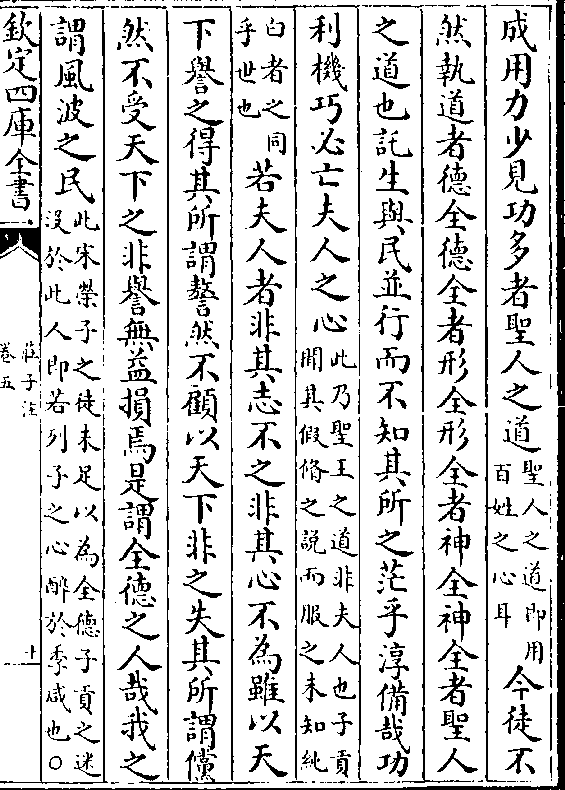 成用力少見功多者聖人之道聖人之道即用百姓之心耳今徒不
然執道者德全德全者形全形全者神全神全者聖人
之道也託生與民並行而不知其所之茫乎淳備哉功
利機巧必亡夫人之心此乃聖王之道非夫人也子貢聞其假脩之說而服之未知純
白者之同乎世也若夫人者非其志不之非其心不為雖以天
下譽之得其所謂謷然不顧以天下非之失其所謂儻
然不受天下之非譽無益損焉是謂全德之人哉我之
謂風波之民此宋榮子之徒未足以為全德子貢之迷没於此人即若列子之心醉於季咸也○
欽定四庫全書
莊子注
卷五
十